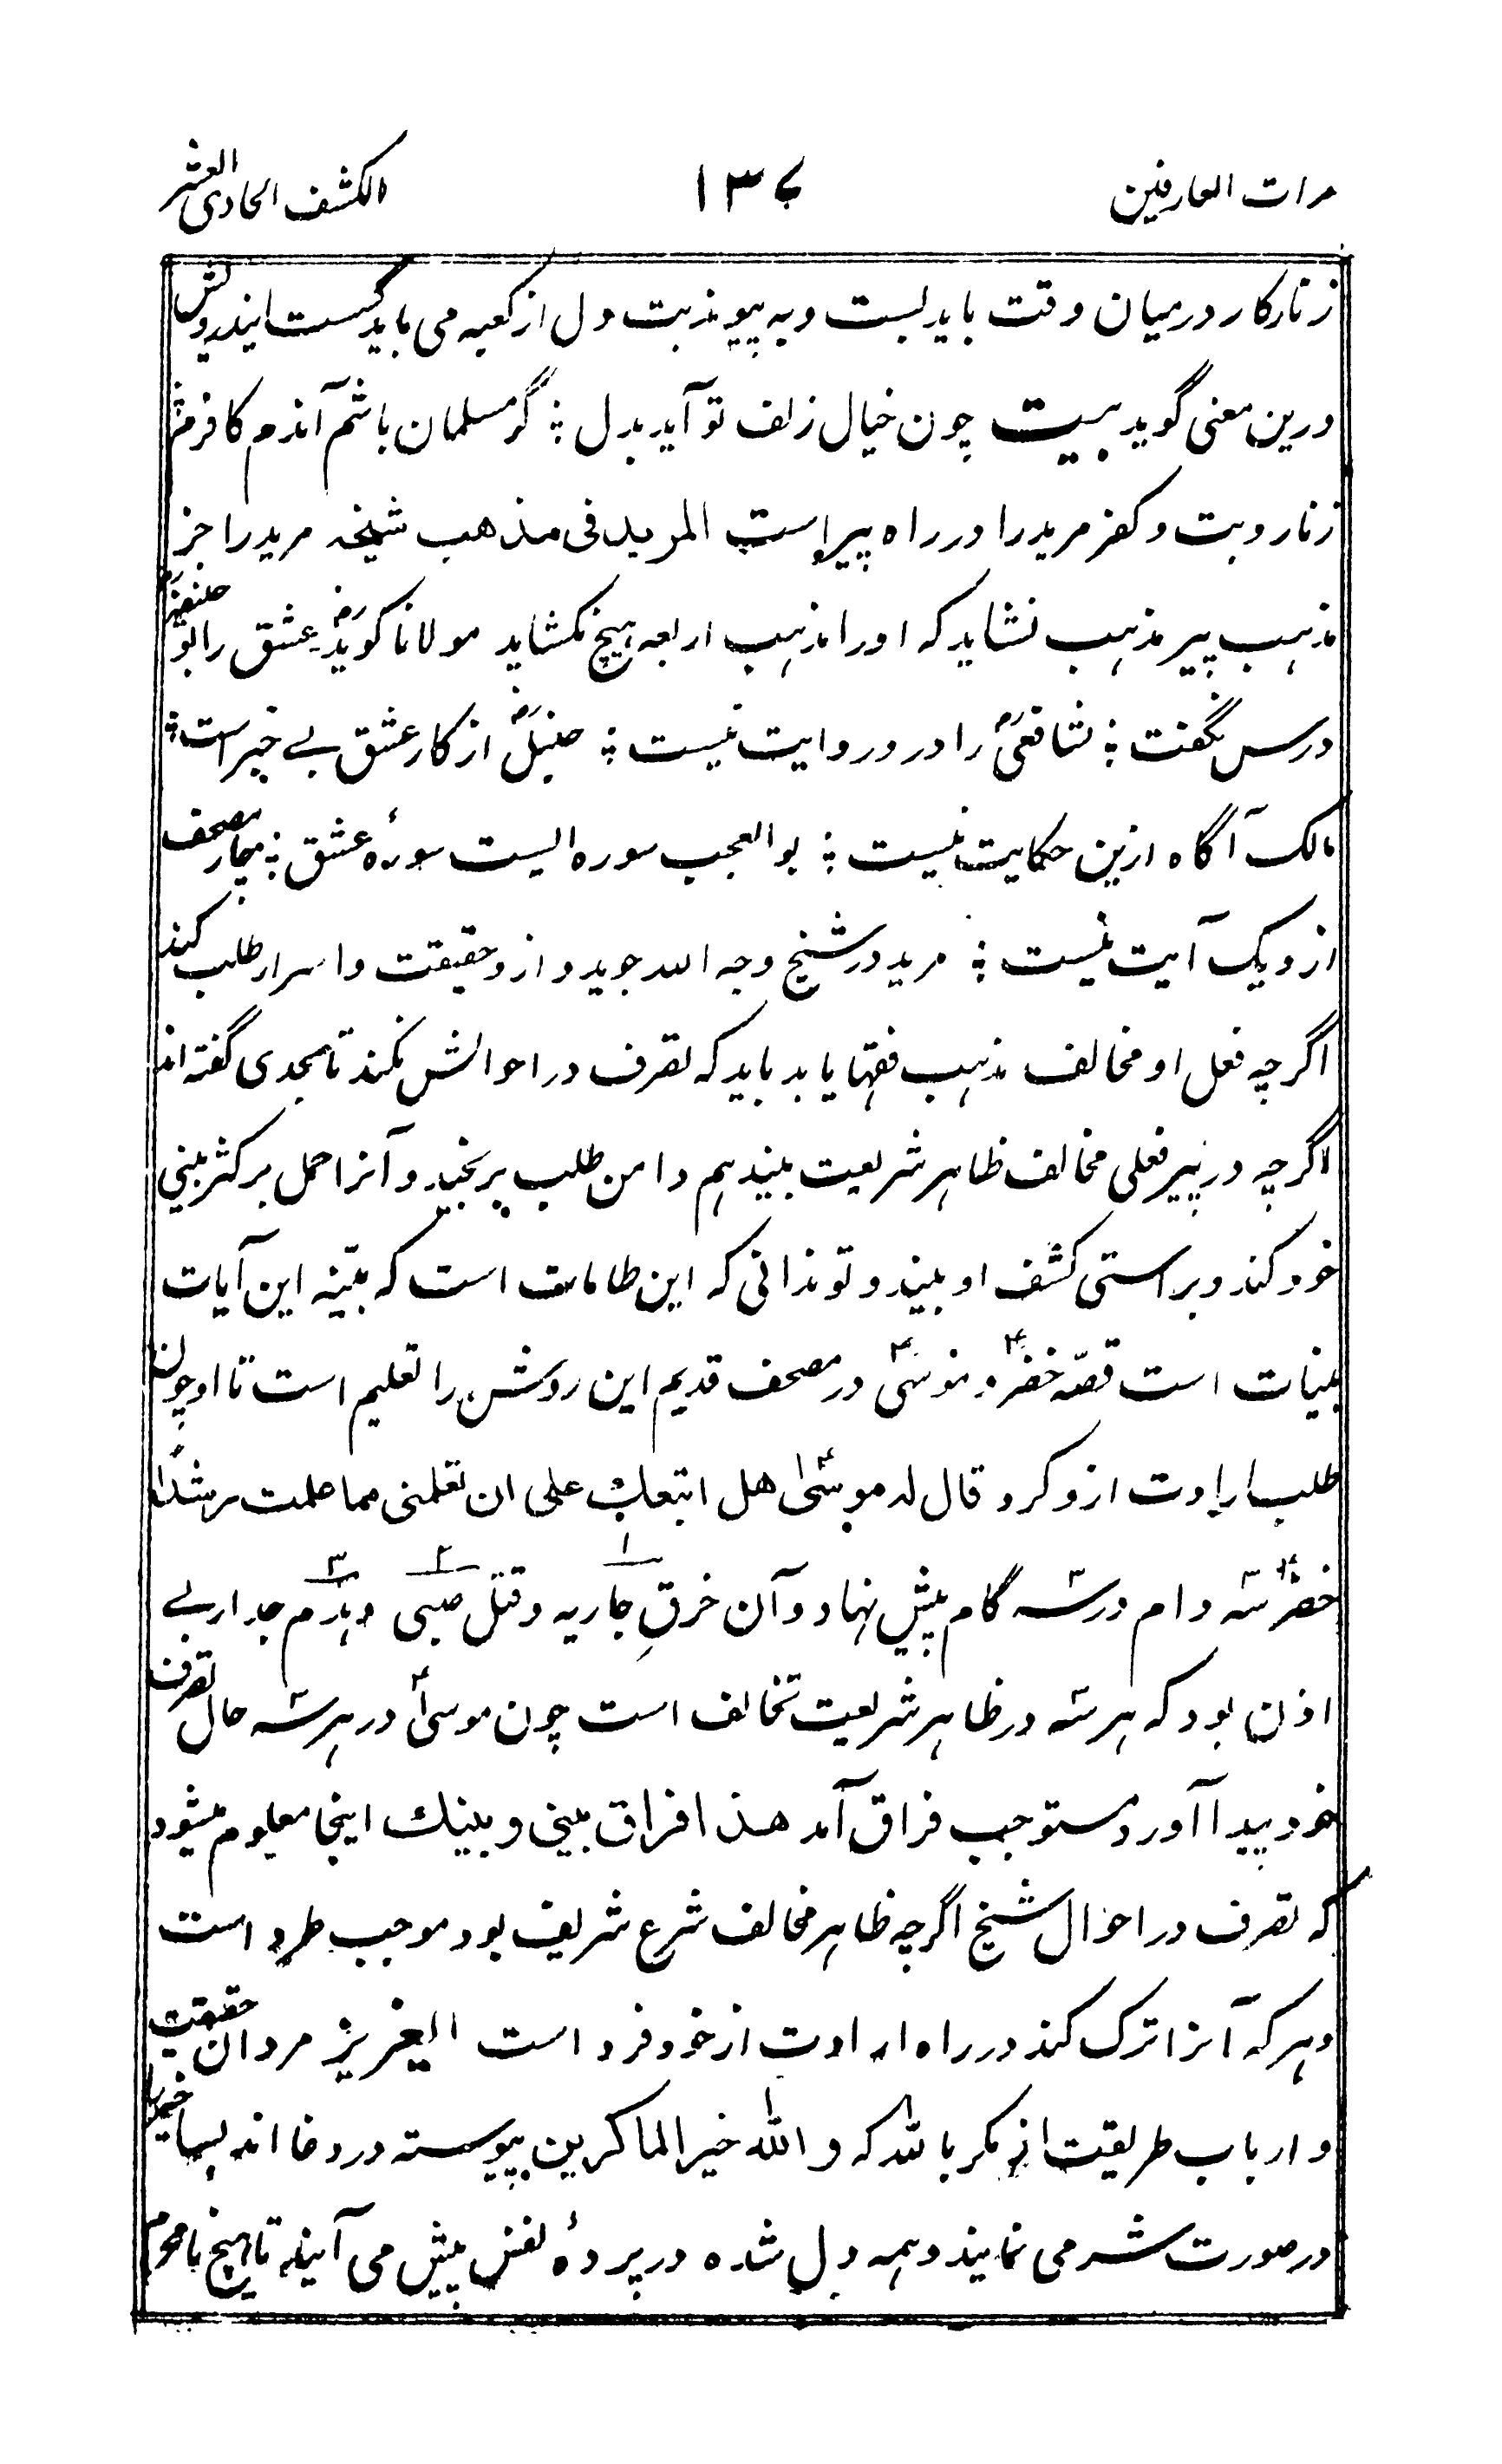 مرات العارفین ۱۳۶ الکشف الحادی العشر
زنار کار درمیان وقت باید بست و به پیوند بت دل از کعبه می باید گسست ایندرویش
درین معنی گوید بیت چون خیال زلف تو آید بدل ؛ گر مسلمان باشم آندم کافرم
زنار و بت و کفر مرید را در راه پیر است المرید فی مذهب شیخه مرید را جز
مذہب پیر مذہب نشاید که او را مذہب اربعه ہیچ نکشاید مولانا گوید رض عشق را ابو حنیفه رح
درس نگفت ؛ شافعی رح را در و روایت نیست ؛ حنبل رض از کار عشق بے خبر است ؛
مالک آگاه ازین حکایت نیست ؛ بوالعجب سوره ایست سورهٔ عشق ؛ چار مصحف
ازو یک آیت نیست ؛ مرید در شیخ وجه الله جوید و ازو حقیقت و اسرار طلب کند
اگر چه فعل او مخالف مذہب فقہا یابد باید که تصرف در احوالش نکند تا بحدی گفته اند
اگر چه در پیر فعلی مخالف ظاہر شریعت بیند ہم دامن طلب بر نچیند و آنرا حمل بر کژ بینی
خود کند و براستی کشف او بیند و تو ندانی که این طامات است که بیّنه این آیات
بینات است قصّه خضر ۴ و موسی ۴ در مصحف قدیم این روش را تعلیم است تا او چون
طلب ارادت ازو کرد قال له موسیٰ ۴ هل اتبعک علی ان تعلمنی مما علمت رشدًا
خضر ۴ سه دام در سه گام پیش نهاد و آن خرقِ جاریه ۱ و قتل صبی ۲ و ہدم ۳ جدار بے
اذن بود که ہر سه در ظاہر شریعت تخالف است چون موسی ۴ در ہر سه حال تصرف
خود پیدا آورد مستوجب فراق آمد هذا فراق بینی و بینک اینجا معلوم میشود
که تصرف در احوال شیخ اگرچه ظاہر مخالف شرع شریف بود موجب طرد است
و ہر که آنرا ترک کند در راه ارادت از خود فرد است ایعزیز مردان حقیقت
و ارباب طریقت از مکر بالله که و الله خیر الماکرین پیوسته در دغا اند بسا خیر را
در صورت شر می نمایند و ہمه دل شده در پردهٔ نفس پیش می آیند تا ہیچ نامحرم